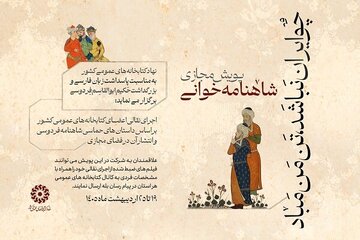 چو ایران نباشد، تن من مباد
پویش مجازی
شاهنامه‌خوانی
نهاد کتابخانه‌های عمومی کشور
به مناسبت پاسداشت زبان فارسی و
بزرگداشت حکیم ابوالقاسم فردوسی
برگزار می نماید:
اجرای نقالی اعضای کتابخانه‌های عمومی کشور
بر اساس داستان‌های حماسی شاهنامه فردوسی
و انتشار آن در فضای مجازی
علاقمندان به شرکت در این پویش می توانند
فیلم‌های ضبط شده از اجرای نقالی خود را همراه با
مشخصات فردی به کانال کتابخانه های عمومی
هر استان در پیام رسان بله ارسال نمایند.
۱۹ تا ۲۵ اردیبهشت ماه ۱۴۰۵